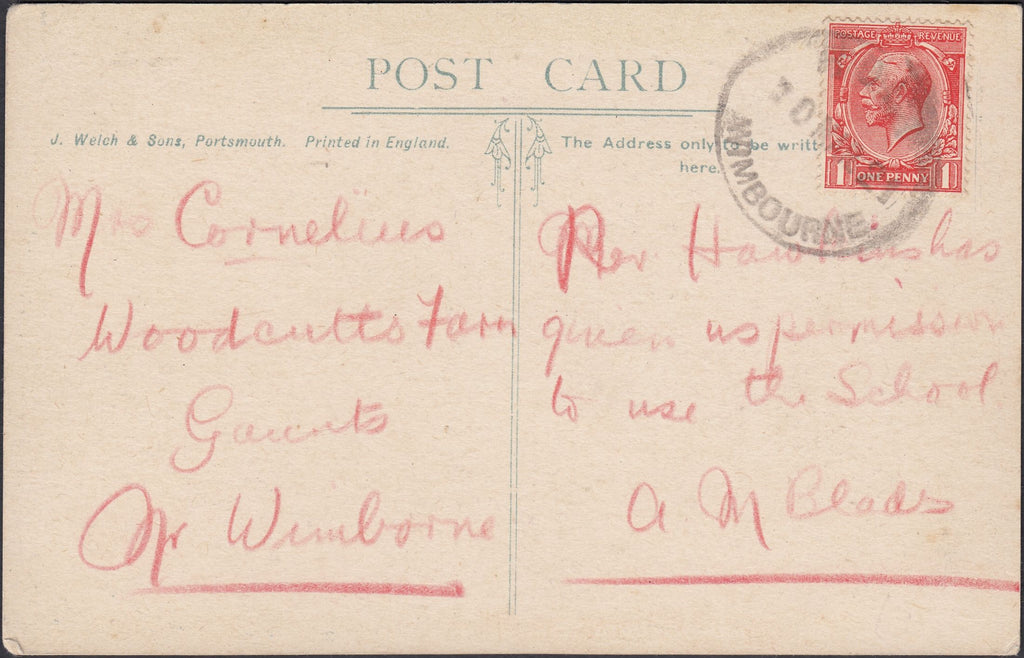 POST CARD
J. Welch & Sons, Portsmouth. Printed in England.
The Address only to be writt
here.
POSTAGE REVENUE
1 ONE PENNY 1
MUMBOURNE
Mrs Cornelius
Woodcutts Farm
Gaunts
Nr Wimborne
Rev Hawkins has
given us permission
to use the School
A M Blades